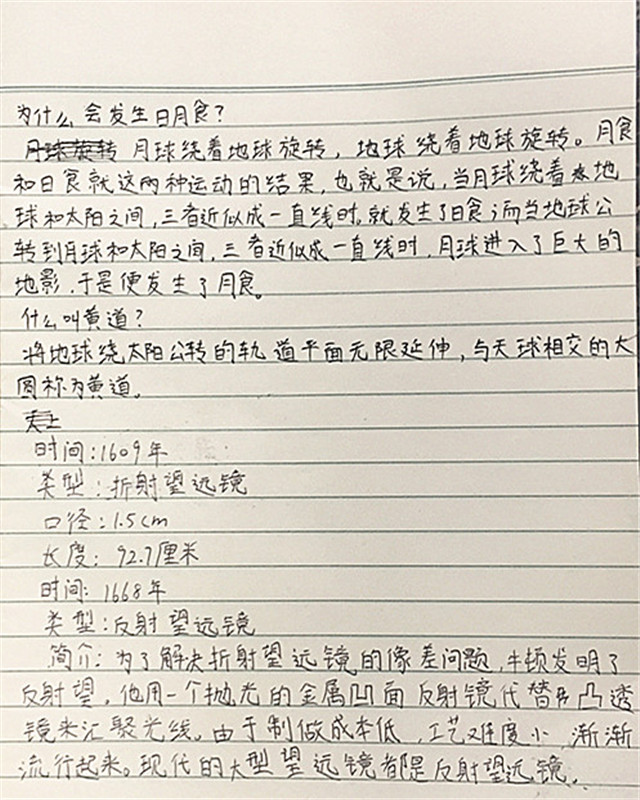 为什么会发生日月食？
月球绕着地球旋转，地球绕着地球旋转。月食
和日食就这两种运动的结果，也就是说，当月球绕着地
球和太阳之间，三者近似成一直线时，就发生了日食；而当地球公
转到月球和太阳之间，三者近似成一直线时，月球进入了巨大的
地影，于是便发生了月食。
什么叫黄道？
将地球绕太阳公转的轨道平面无限延伸，与天球相交的大
圆称为黄道。
时间：1609年
类型：折射望远镜
口径：1.5cm
长度：92.7厘米
时间：1668年
类型：反射望远镜
简介：为了解决折射望远镜的像差问题，牛顿发明了
反射望，他用一个抛光的金属凹面反射镜代替凸透
镜来汇聚光线。由于制做成本低，工艺难度小，渐渐
流行起来。现代的大型望远镜都是反射望远镜。